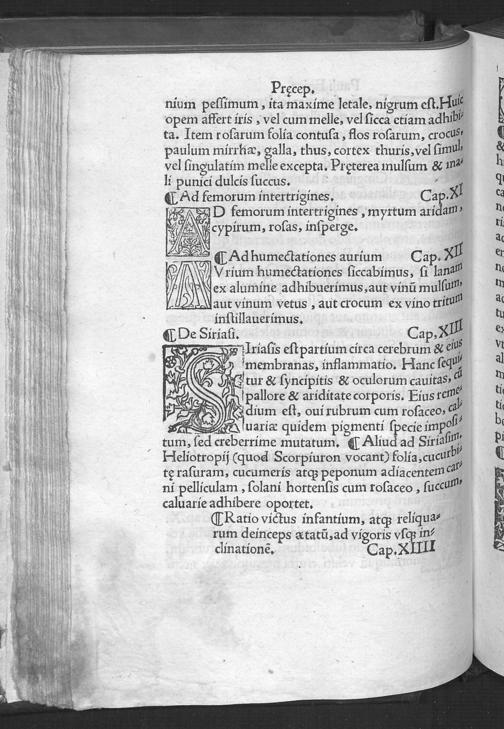 Pręcep.
nium pessimum, ita maxime letale, nigrum est. Huic
opem affert iris, vel cum melle, vel sicca etiam adhibi⸗
ta. Item rosarum folia contusa, flos rosarum, crocus,
paulum mirrhæ, galla, thus, cortex thuris, vel simul,
vel singulatim melle excepta. Pręterea mulsum & ma⸗
li punici dulcis succus.
¶ Ad femorum intertrigines. Cap. XI
AD femorum intertrigines, myrtum aridam,
cypirum, rosas, insperge.
¶ Ad humectationes aurium Cap. XII
AVrium humectationes siccabimus, si lanam
ex alumine adhibuerimus, aut vinū mulsum,
aut vinum vetus, aut crocum ex vino tritum
instillauerimus.
¶ De Siriasi. Cap, XIII
SIriasis est partium circa cerebrum & eius
membranas, inflammatio. Hanc sequi⸗
tur & syncipitis & oculorum cauitas, cū
pallore & ariditate corporis. Eius reme⸗
dium est, oui rubrum cum rosaceo, cal⸗
uariæ quidem pigmenti specie imposi⸗
tum, sed creberrime mutatum. ¶ Aliud ad Siriasim.
Heliotropij (quod Scorpiuron vocant) folia, cucurbi⸗
tę rasuram, cucumeris atqȝ peponum adiacentem car⸗
ni pelliculam, solani hortensis cum rosaceo, succum,
caluarie adhibere oportet.
¶ Ratio victus infantium, atqȝ reliqua⸗
rum deinceps ætatū, ad vigoris vsqȝ in⸗
clinationē. Cap. XIIII